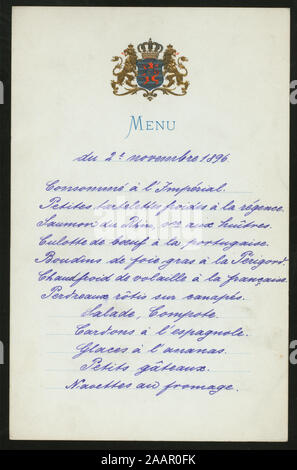 MENU
du 2t novembre 1896
Consommé à l'Impérial.
Petites tartelettes froides à la régence.
Saumon du Rhin, sce aux huîtres.
Culotte de bœuf à la portugaise.
Boudins de foie gras à la Périgord
Chaudfroid de volaille à la française.
Perdreaux rôtis sur canapés.
Salade, Compote
Cardons à l'espagnole.
Glaces à l'ananas.
Petits gâteaux.
Navettes au fromage.
alamy
Image ID: 2AAR0FK
www.alamy.com